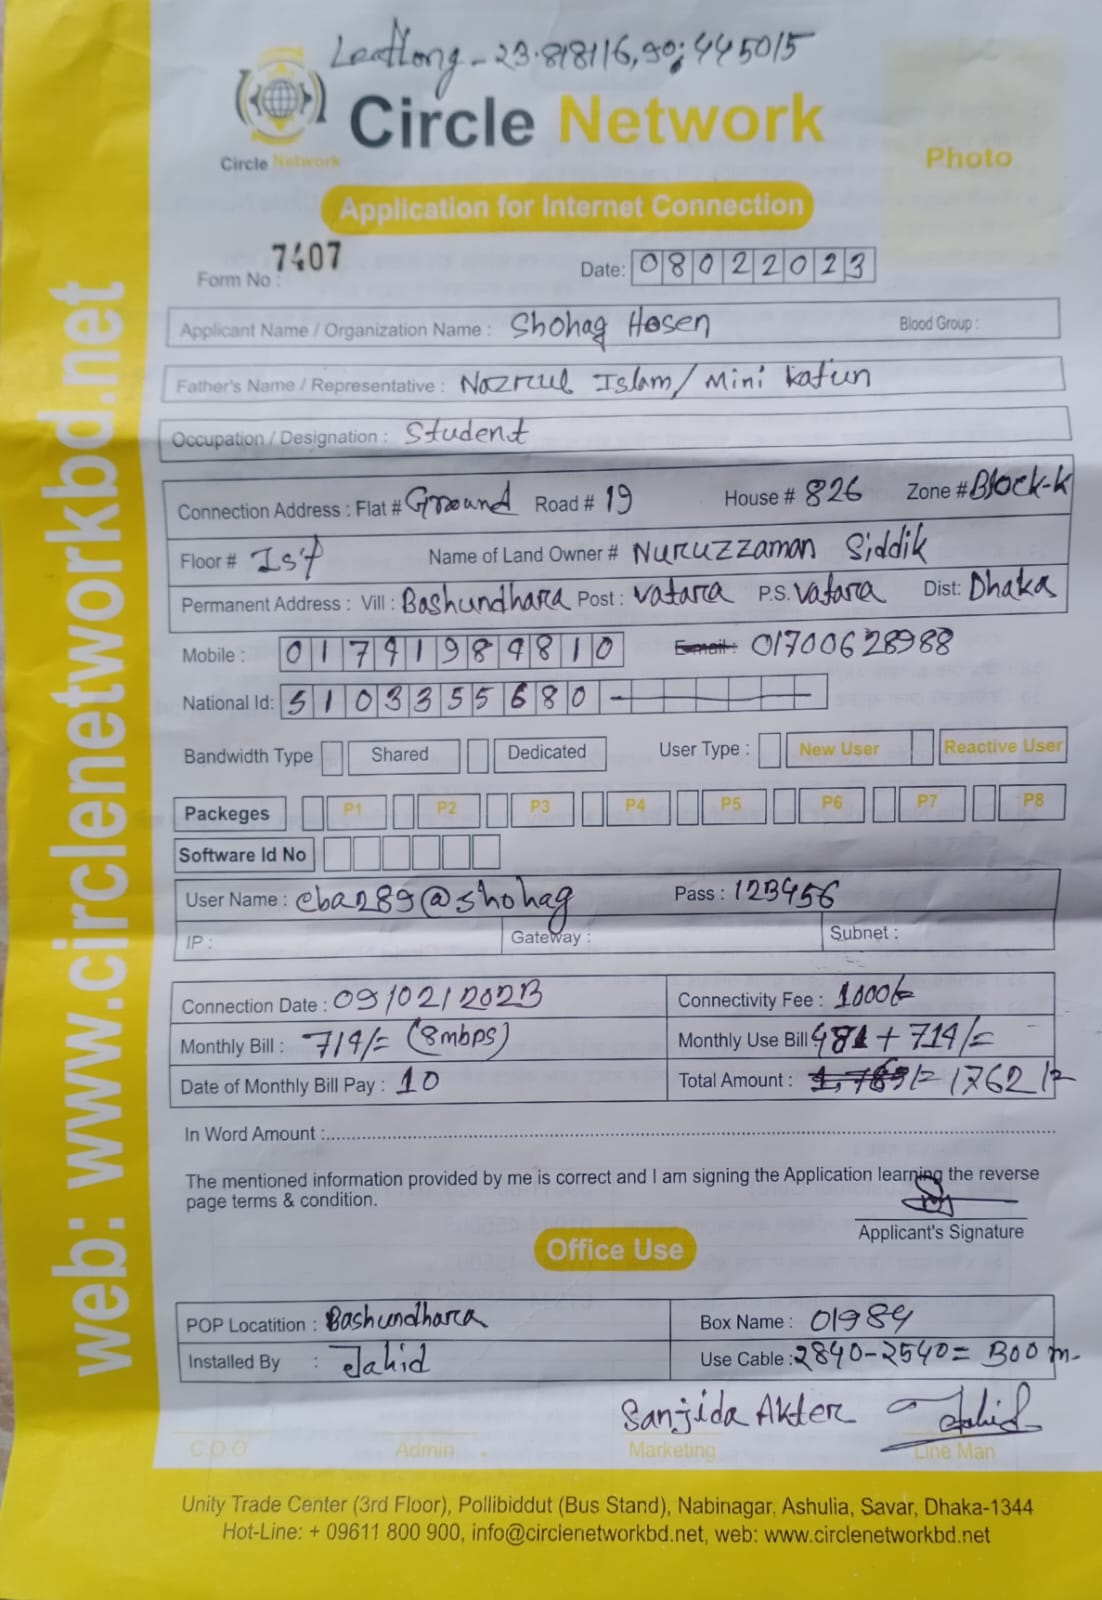 Leatlong - 23.818116, 90; 445015
Circle Network
Circle Network
Photo
Application for Internet Connection
Form No : 7407 Date: 08022023
Applicant Name / Organization Name : Shohag Hosen Blood Group :
Father's Name / Representative : Nazrul Islam / Mini Katun
Occupation / Designation : Student
Connection Address : Flat # Ground Road # 19 House # 826 Zone # Block-k
Floor # 1st Name of Land Owner # Nuruzzaman Siddik
Permanent Address : Vill : Bashundhara Post : vatara P.S. vatara Dist: Dhaka
Mobile : 01741984810 Email : 01700628988
National Id: 5103355680 -
Bandwidth Type Shared Dedicated User Type : New User Reactive User
Packeges P1 P2 P3 P4 P5 P6 P7 P8
Software Id No
User Name : cba289@shohag Pass : 123456
IP : Gateway : Subnet :
Connection Date : 09/02/2023 Connectivity Fee : 1000/=
Monthly Bill : 714/= (8mbps) Monthly Use Bill 481 + 714/=
Date of Monthly Bill Pay : 10 Total Amount : 1762/=
In Word Amount :
The mentioned information provided by me is correct and I am signing the Application learning the reverse
page terms & condition.
Applicant's Signature
Office Use
POP Locatition : Bashundhara Box Name : 01984
Installed By : Jahid Use Cable : 2840-2540= 300 m.
Sanjida Akter Jahid
C.D.O Admin Marketing Line Man
Unity Trade Center (3rd Floor), Pollibiddut (Bus Stand), Nabinagar, Ashulia, Savar, Dhaka-1344
Hot-Line: + 09611 800 900, info@circlenetworkbd.net, web: www.circlenetworkbd.net
web: www.circlenetworkbd.net